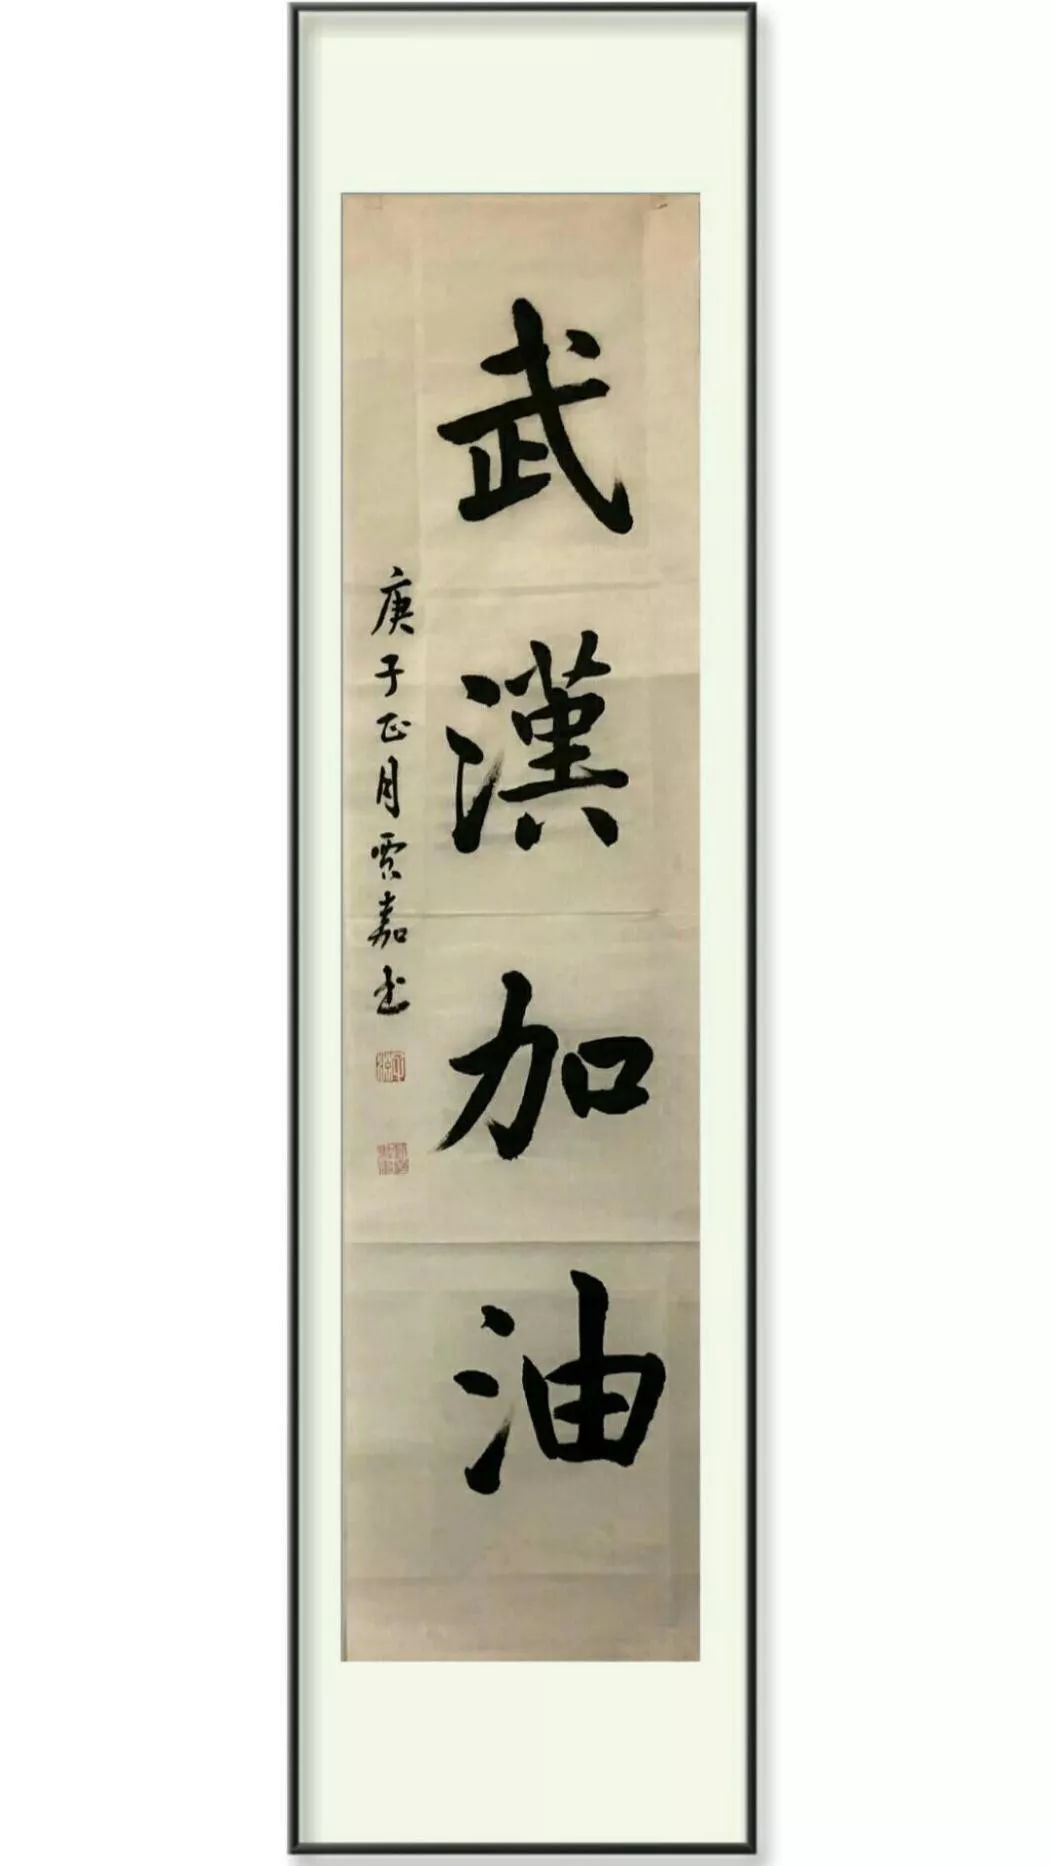 武漢加油
庚子正月贾嘉书